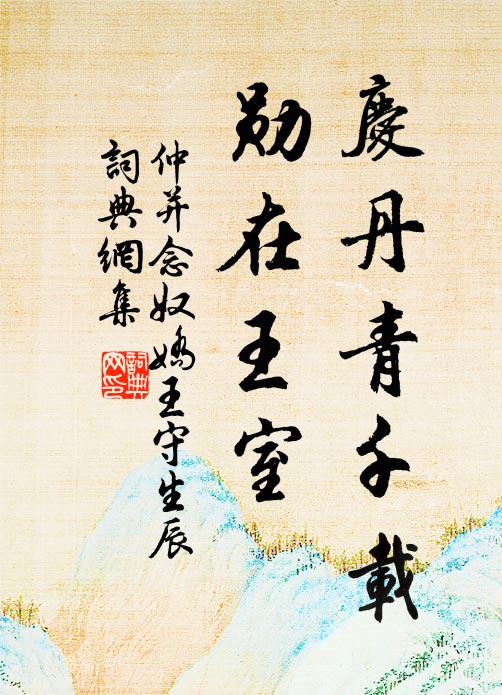 慶丹青千載
勛在王室
仲并念奴嬌王守生辰
詞典網集
詞典网印